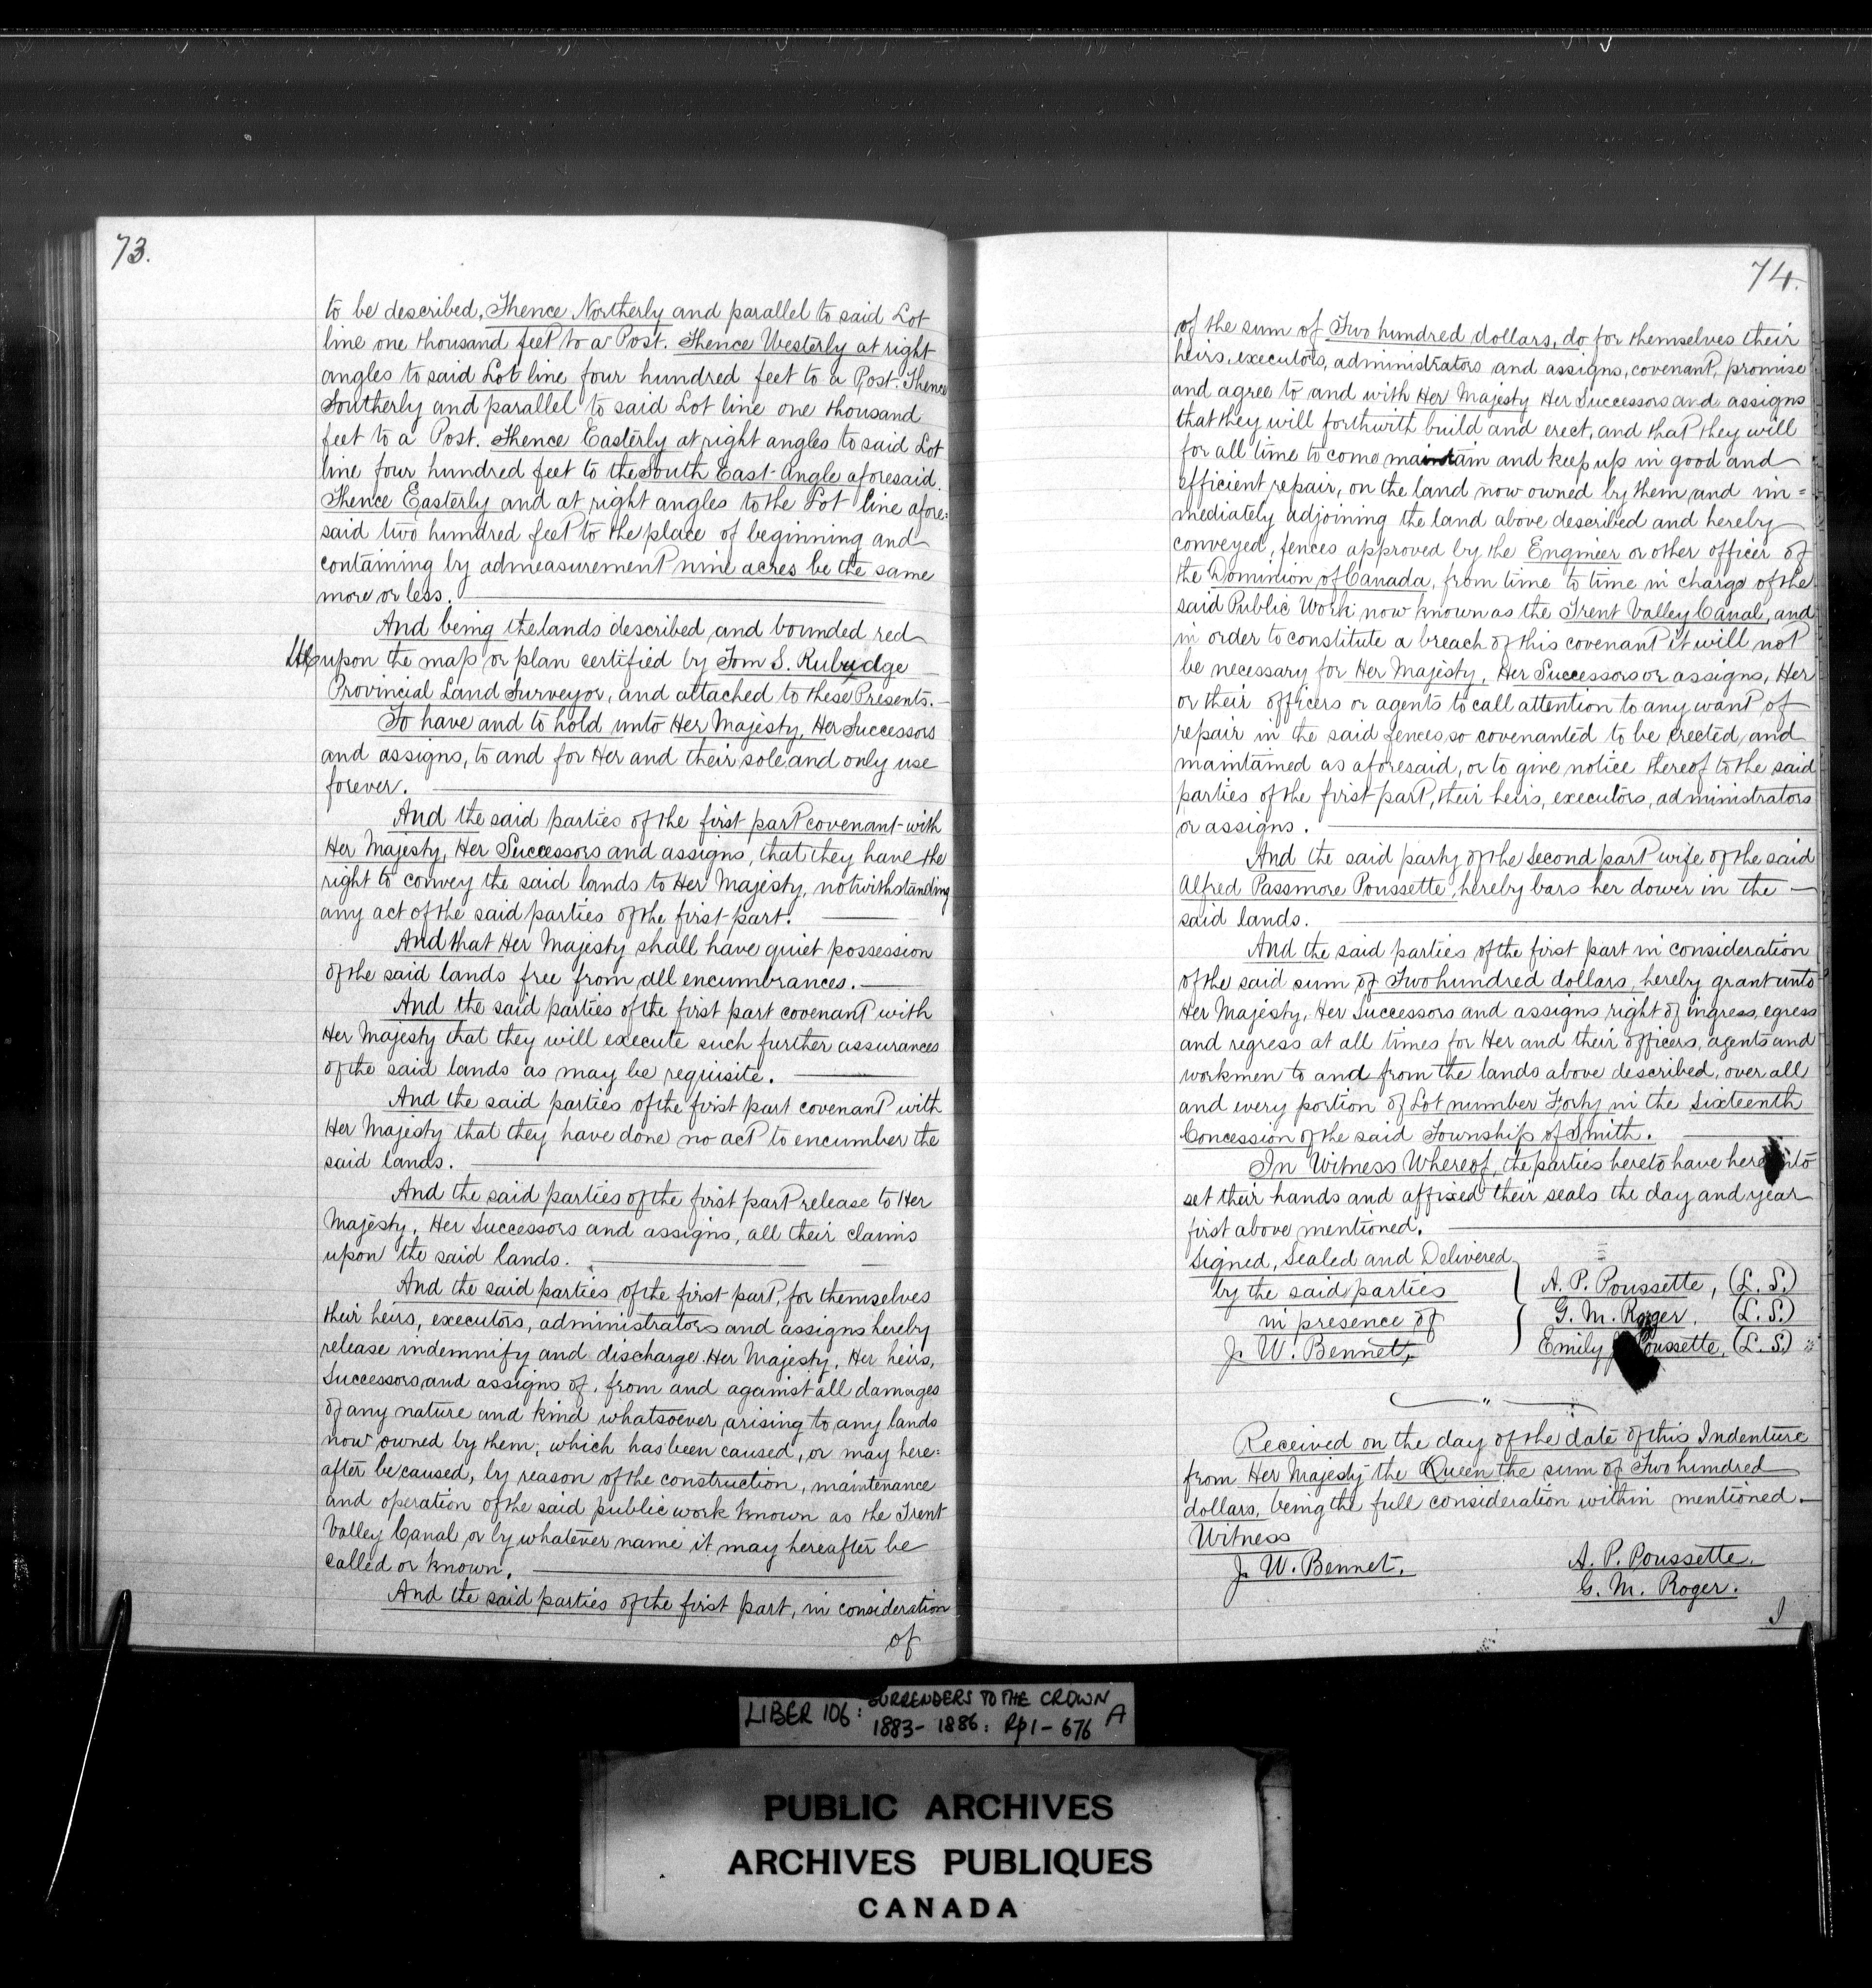 73.
to be described, Thence Northerly and parallel to said Lot
line one thousand feet to a Post. Thence Westerly at right
angles to said Lot line four hundred feet to a Post. Thence
Southerly and parallel to said Lot line one thousand
feet to a Post. Thence Easterly at right angles to said Lot
line four hundred feet to the South East Angle aforesaid.
Thence Easterly and at right angles to the Lot line afore=
said two hundred feet to the place of beginning and
containing by admeasurement nine acres be the same
more or less.
And being the lands described and bounded red
upon the map or plan certified by Tom S. Rubridge
Provincial Land Surveyor, and attached to these Presents.
To have and to hold unto Her Majesty, Her Successors
and assigns, to and for Her and their sole and only use
forever.
And the said parties of the first part covenant with
Her Majesty, Her Successors and assigns, that they have the
right to convey the said lands to Her Majesty, notwithstanding
any act of the said parties of the first part.
And that Her Majesty shall have quiet possession
of the said lands free from all encumbrances.
And the said parties of the first part covenant with
Her Majesty that they will execute such further assurances
of the said lands as may be requisite.
And the said parties of the first part covenant with
Her Majesty that they have done no act to encumber the
said lands.
And the said parties of the first part release to Her
Majesty, Her Successors and assigns, all their claims
upon the said lands.
And the said parties of the first part, for themselves
their heirs, executors, administrators and assigns hereby
release indemnify and discharge Her Majesty, Her heirs,
Successors and assigns of, from and against all damages
of any nature and kind whatsoever arising to any lands
now owned by them, which has been caused, or may here=
after be caused, by reason of the construction, maintenance
and operation of the said public work known as the Trent
Valley Canal or by whatever name it may hereafter be
called or known.
And the said parties of the first part, in consideration
of
74.
of the sum of Two hundred dollars, do for themselves their
heirs, executors, administrators and assigns, covenant, promise
and agree to and with Her Majesty Her Successors and assigns
that they will forthwith build and erect, and that they will
for all time to come maintain and keep up in good and
efficient repair, on the land now owned by them and im=
mediately adjoining the land above described and hereby
conveyed, fences approved by the Engineer or other officer of
the Dominion of Canada, from time to time in charge of the
said Public Work now known as the Trent Valley Canal, and
in order to constitute a breach of this covenant it will not
be necessary for Her Majesty, Her Successors or assigns, Her
or their officers or agents to call attention to any want of
repair in the said fences so covenanted to be erected and
maintained as aforesaid, or to give notice thereof to the said
parties of the first part, their heirs, executors, administrators
or assigns.
And the said party of the second part wife of the said
Alfred Passmore Poussette, hereby bars her dower in the
said lands.
And the said parties of the first part in consideration
of the said sum of Two hundred dollars, hereby grant unto
Her Majesty, Her Successors and assigns right of ingress, egress
and regress at all times for Her and their officers, agents and
workmen to and from the lands above described, over all
and every portion of Lot number Forty in the sixteenth
Concession of the said Township of Smith.
In Witness Whereof, the parties hereto have hereunto
set their hands and affixed their seals the day and year
first above mentioned.
Signed, Sealed and Delivered
by the said parties
in presence of
J. W. Bennett,
A. P. Poussette, (L. S.)
G. M. Roger. (L. S.)
Emily Poussette, (L. S.)
Received on the day of the date of this Indenture
from Her Majesty the Queen the sum of Two hundred
dollars, being the full consideration within mentioned.
Witness
J. W. Bennet.
A. P. Poussette.
G. M. Roger.
LIBER 106: SURRENDERS TO THE CROWN A
1883-1886: Pp 1-676
PUBLIC ARCHIVES
ARCHIVES PUBLIQUES
CANADA